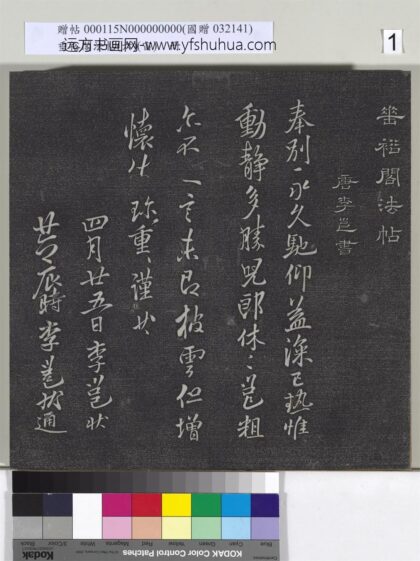 贈帖 000115N000000000(國贈 032141)
远方书画网-www.yfshuhua.com
1
唐李邕書
奉別一永久馳仰益深已熱惟
動靜多勝兒郎休休邕粗
尒不一言未即披雲但增
懷仕珍重珍重謹狀
四月廿五日李邕狀
李邕狀通
Blue
Cyan
Green
Yellow
Red
Magenta
White
3/Color
Black
KODAK Color Control Patches
Kodak